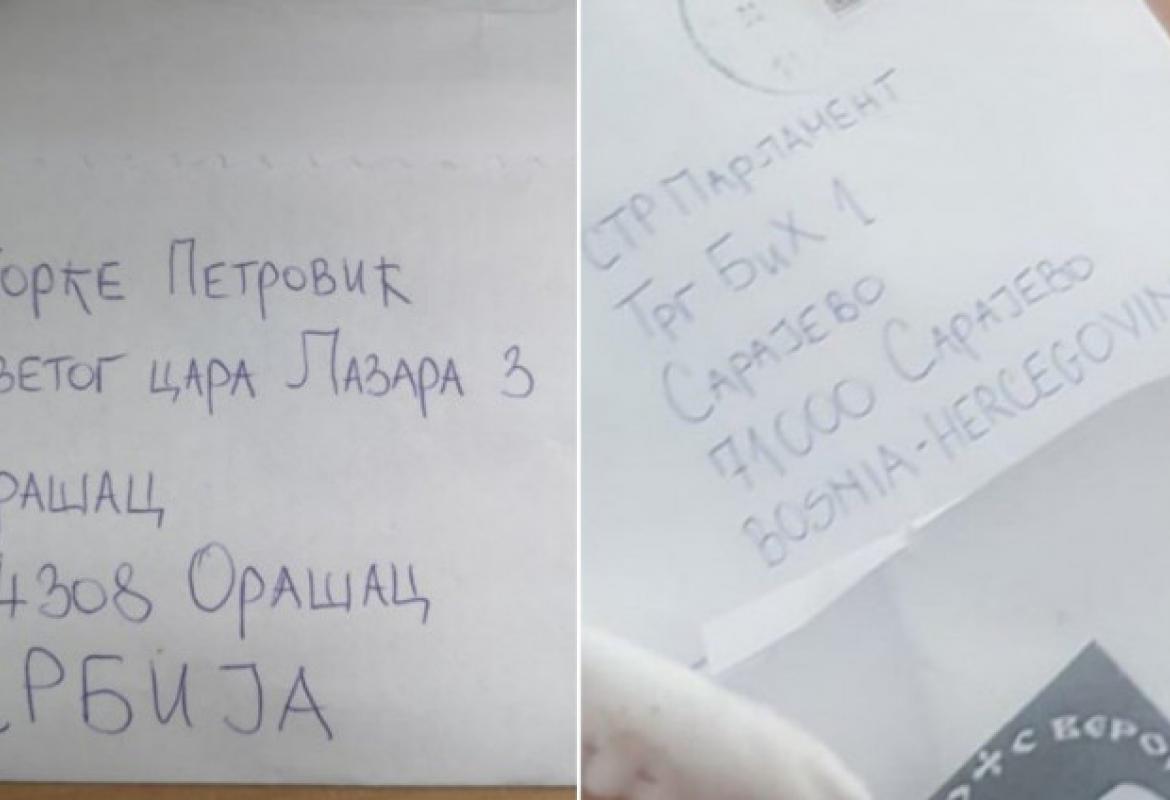 ОРЂЕ ПЕТРОВИЋ
ВЕТОГ ЦАРА ЛАЗАРА 3
РАШАЦ
4308 ОРАШАЦ
РБИЈА
СТР ПАРЛАМЕНТ
ТРГ БиХ 1
САРАЈЕВО
71000 САРАЈЕВО
BOSNIA-HERCEGOVIN
С ВЕРО